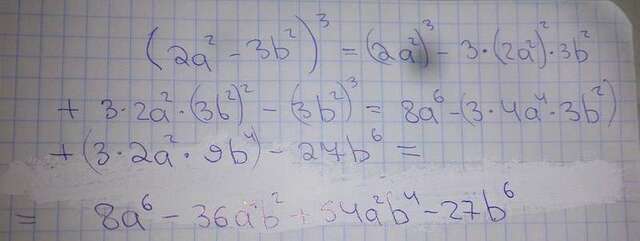 (2a² - 3b²)³ = (2a²)³ - 3·(2a²)²·3b²
+ 3·2a²·(3b²)² - (3b²)³ = 8a⁶ - (3·4a⁴·3b²)
+ (3·2a²·9b⁴) - 27b⁶ =
= 8a⁶ - 36a⁴b² + 54a²b⁴ - 27b⁶